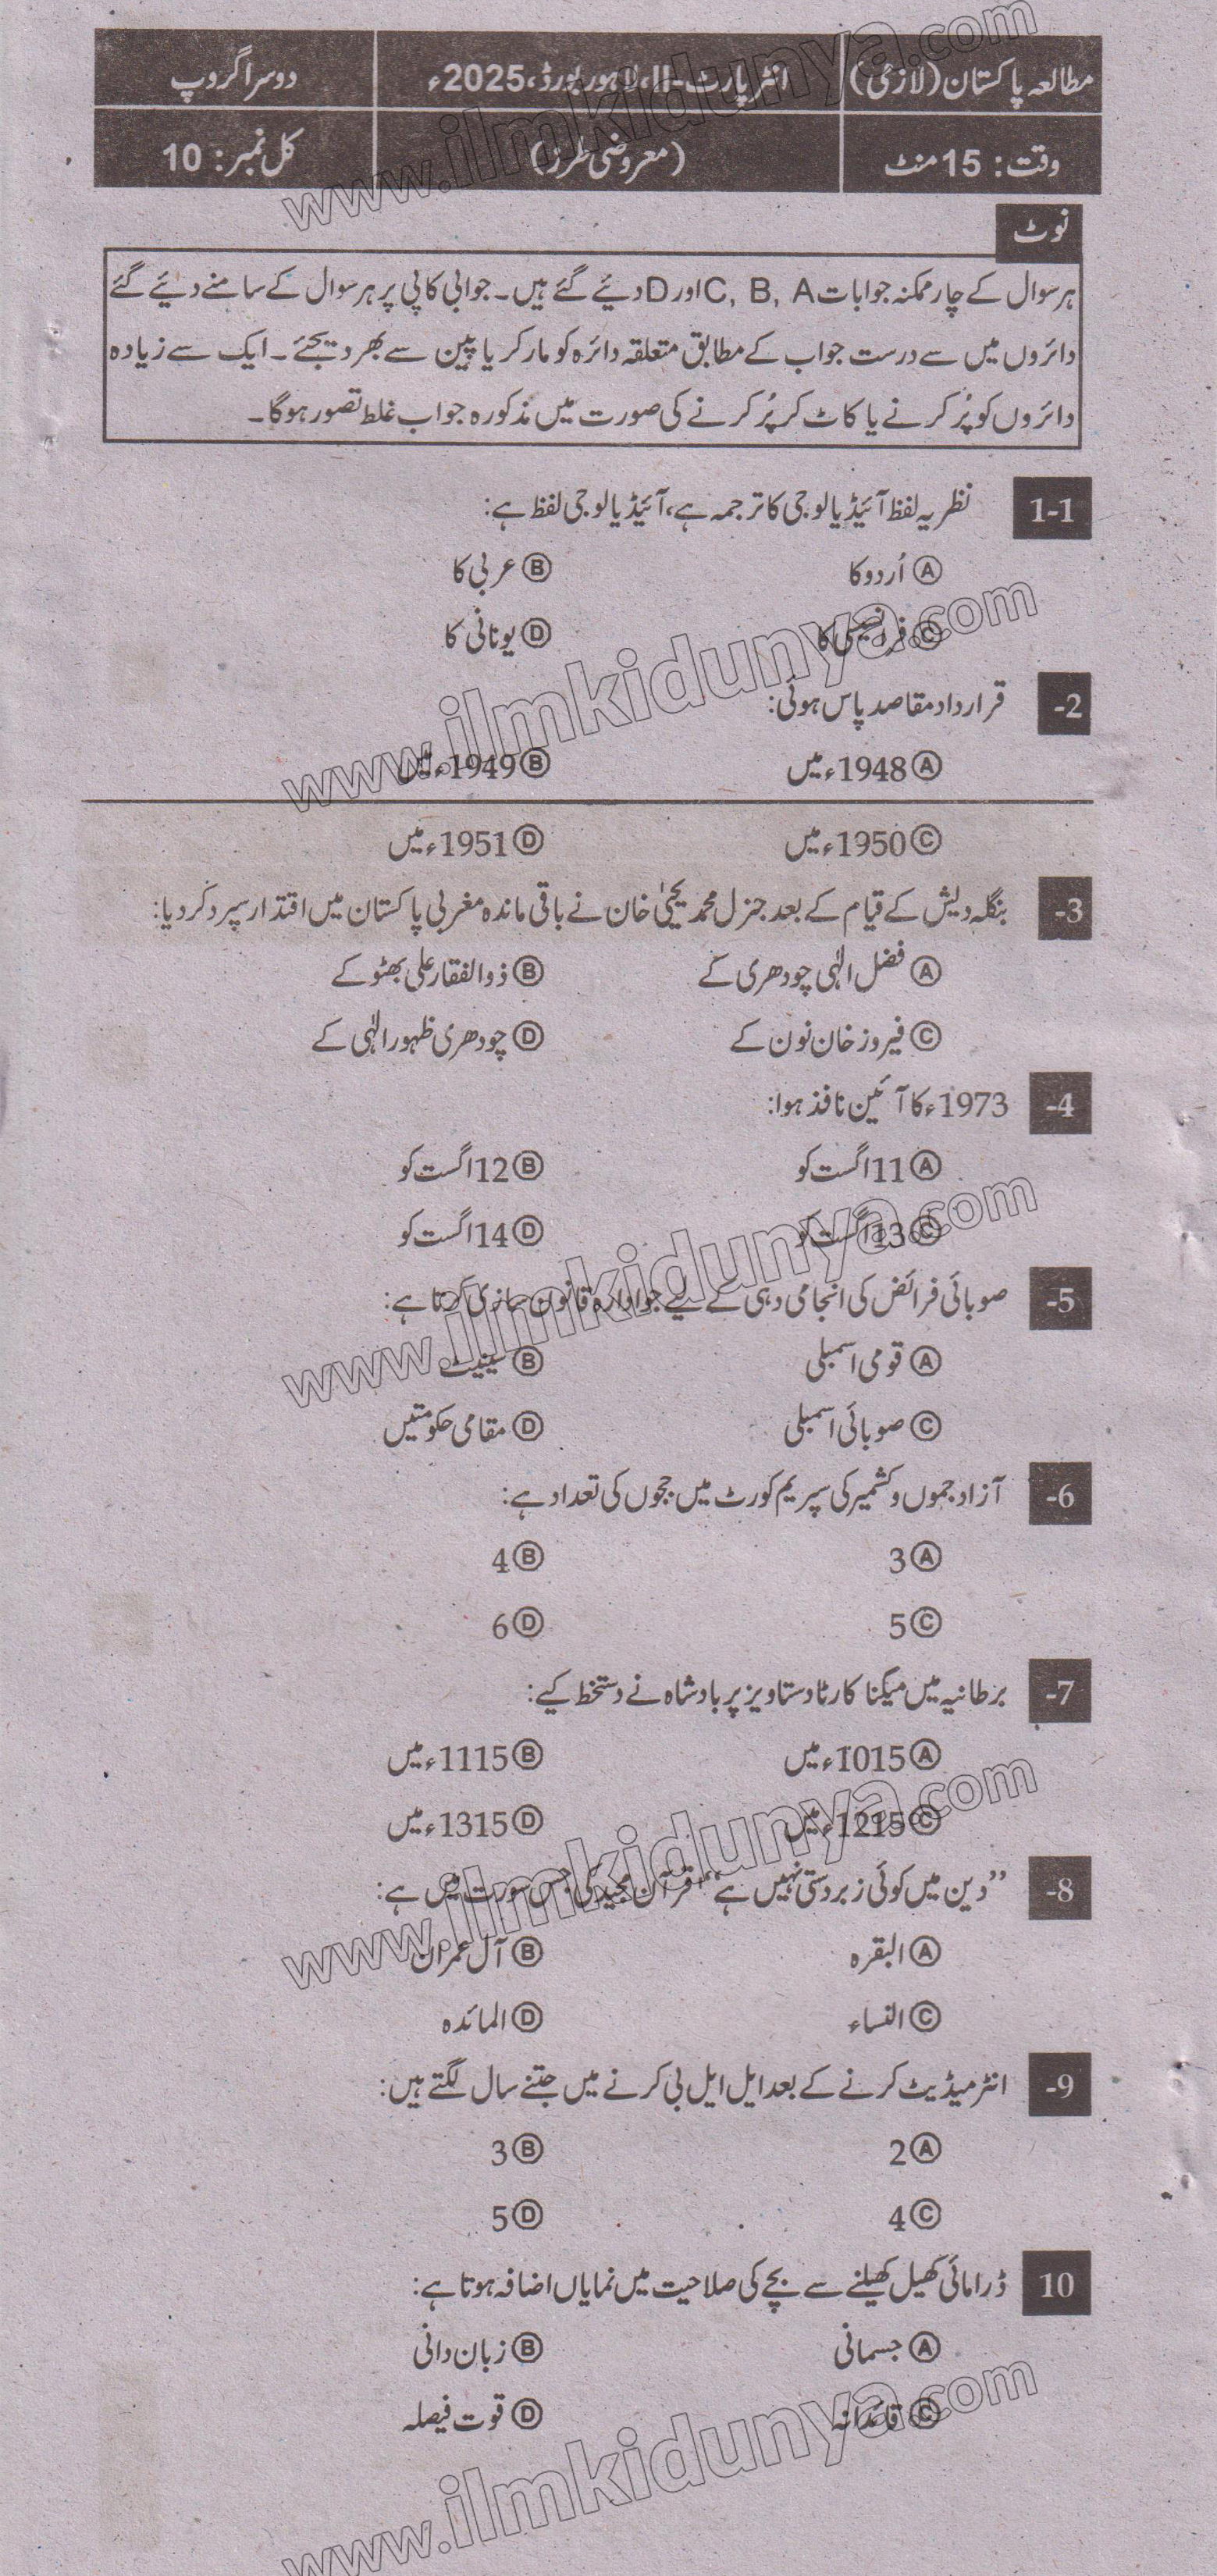 مطالعہ پاکستان (لازمی) انٹر پارٹ-II، لاہور بورڈ، 2025ء دوسرا گروپ
وقت: 15 منٹ (معروضی طرز) کل نمبر: 10
نوٹ
ہر سوال کے چار ممکنہ جوابات C, B, A اور D دیئے گئے ہیں۔ جوابی کاپی پر ہر سوال کے سامنے دیئے گئے
دائروں میں سے درست جواب کے مطابق متعلقہ دائرہ کو مارکر یا پین سے بھر دیجئے۔ ایک سے زیادہ
دائروں کو پُر کرنے یا کاٹ کر پُر کرنے کی صورت میں مذکورہ جواب غلط تصور ہوگا۔
1-1 نظریہ لفظ آئیڈیالوجی کا ترجمہ ہے، آئیڈیالوجی لفظ ہے:
Ⓐ اُردو کا Ⓑ عربی کا
Ⓒ فرانسیسی کا Ⓓ یونانی کا
-2 قرارداد مقاصد پاس ہوئی:
Ⓐ 1948ء میں Ⓑ 1949ء میں
Ⓒ 1950ء میں Ⓓ 1951ء میں
-3 بنگلہ دیش کے قیام کے بعد جنرل محمد یحییٰ خان نے باقی ماندہ مغربی پاکستان میں اقتدار سپرد کر دیا:
Ⓐ فضل الٰہی چودھری کے Ⓑ ذوالفقار علی بھٹو کے
Ⓒ فیروز خان نون کے Ⓓ چودھری ظہور الٰہی کے
-4 1973ء کا آئین نافذ ہوا:
Ⓐ 11 اگست کو Ⓑ 12 اگست کو
Ⓒ 13 اگست کو Ⓓ 14 اگست کو
-5 صوبائی فرائض کی انجامی دہی کے لیے جو ادارہ قانون سازی کرتا ہے:
Ⓐ قومی اسمبلی Ⓑ سینیٹ
Ⓒ صوبائی اسمبلی Ⓓ مقامی حکومتیں
-6 آزاد جموں و کشمیر کی سپریم کورٹ میں ججوں کی تعداد ہے:
Ⓐ 3 Ⓑ 4
Ⓒ 5 Ⓓ 6
-7 برطانیہ میں میگنا کارٹا دستاویز پر بادشاہ نے دستخط کیے:
Ⓐ 1015ء میں Ⓑ 1115ء میں
Ⓒ 1215ء میں Ⓓ 1315ء میں
-8 ’’دین میں کوئی زبردستی نہیں ہے‘‘ قرآن مجید کی جس سورت میں ہے:
Ⓐ البقرہ Ⓑ آل عمران
Ⓒ النساء Ⓓ المائدہ
-9 انٹرمیڈیٹ کرنے کے بعد ایل ایل بی کرنے میں جتنے سال لگتے ہیں:
Ⓐ 2 Ⓑ 3
Ⓒ 4 Ⓓ 5
10 ڈرامائی کھیل کھیلنے سے بچے کی صلاحیت میں نمایاں اضافہ ہوتا ہے:
Ⓐ جسمانی Ⓑ زبان دانی
Ⓒ قائدانہ Ⓓ قوت فیصلہ
www.ilmkidunya.com
www.ilmkidunya.com
www.ilmkidunya.com
www.ilmkidunya.com
www.ilmkidunya.com